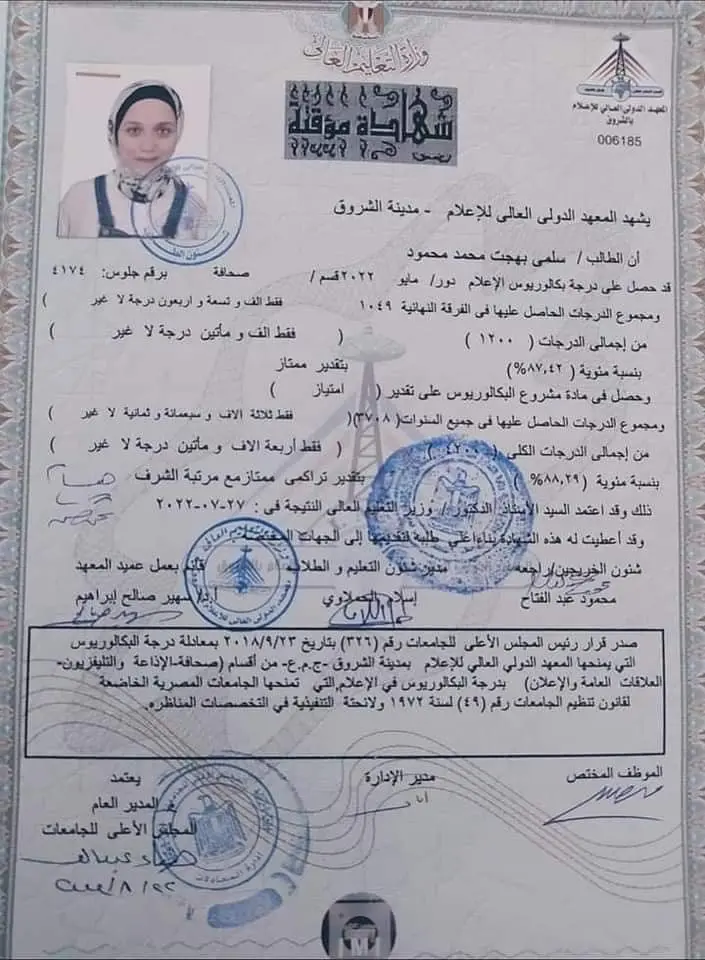 وزارة التعليم العالى
شهادة مؤقتة
المعهد الدولى العالى للإعلام
بالشروق
006185
يشهد المعهد الدولى العالى للإعلام - مدينة الشروق
أن الطالب / سلمى بهجت محمد محمود
قد حصل على درجة بكالوريوس الإعلام دور/ مايو ٢٠٢٢ قسم / صحافة برقم جلوس: ٤١٧٤
ومجموع الدرجات الحاصل عليها فى الفرقة النهائية ١٠٤٩ فقط الف و تسعة و اربعون درجة لا غير )
من إجمالى الدرجات ( ١٢٠٠ ) ( فقط الف و مأتين درجة لا غير )
بنسبة مئوية ( ٨٧,٤٢%) بتقدير ممتاز
وحصل فى مادة مشروع البكالوريوس على تقدير ( امتياز )
ومجموع الدرجات الحاصل عليها فى جميع السنوات( ٣٧٠٨)( فقط ثلاثة الاف و سبعمائة و ثمانية لا غير )
من إجمالى الدرجات الكلى ( ٤٢٠٠ ) ( فقط أربعة الاف و مأتين درجة لا غير )
بنسبة مئوية ( ٨٨,٢٩% ) بتقدير تراكمى ممتاز مع مرتبة الشرف
ذلك وقد اعتمد السيد الأستاذ الدكتور / وزير التعليم العالى النتيجة فى : ٢٧-٠٧-٢٠٢٢
وقد أعطيت له هذه الشهادة بناءا على طلبه لتقديمها إلى الجهات المختصة
شئون الخريجين/راجعه مدير شئون التعليم و الطلاب قائم بعمل عميد المعهد
محمود عبد الفتاح إسلام الحملاوي أ.د/ سهير صالح إبراهيم
صدر قرار رئيس المجلس الأعلى للجامعات رقم (٣٢٦) بتاريخ ٢٠١٨/٩/٢٣ بمعادلة درجة البكالوريوس
التي يمنحها المعهد الدولي العالي للإعلام بمدينة الشروق -ج.م.ع- من أقسام (صحافة-الإذاعة والتليفزيون-
العلاقات العامة والإعلان) بدرجة البكالوريوس في الإعلام,التي تمنحها الجامعات المصرية الخاضعة
لقانون تنظيم الجامعات رقم (٤٩) لسنة ١٩٧٢ ولائحتة التنفيذية في التخصصات المناظره.
الموظف المختص مدير الإدارة يعتمد
المدير العام
المجلس الأعلى للجامعات